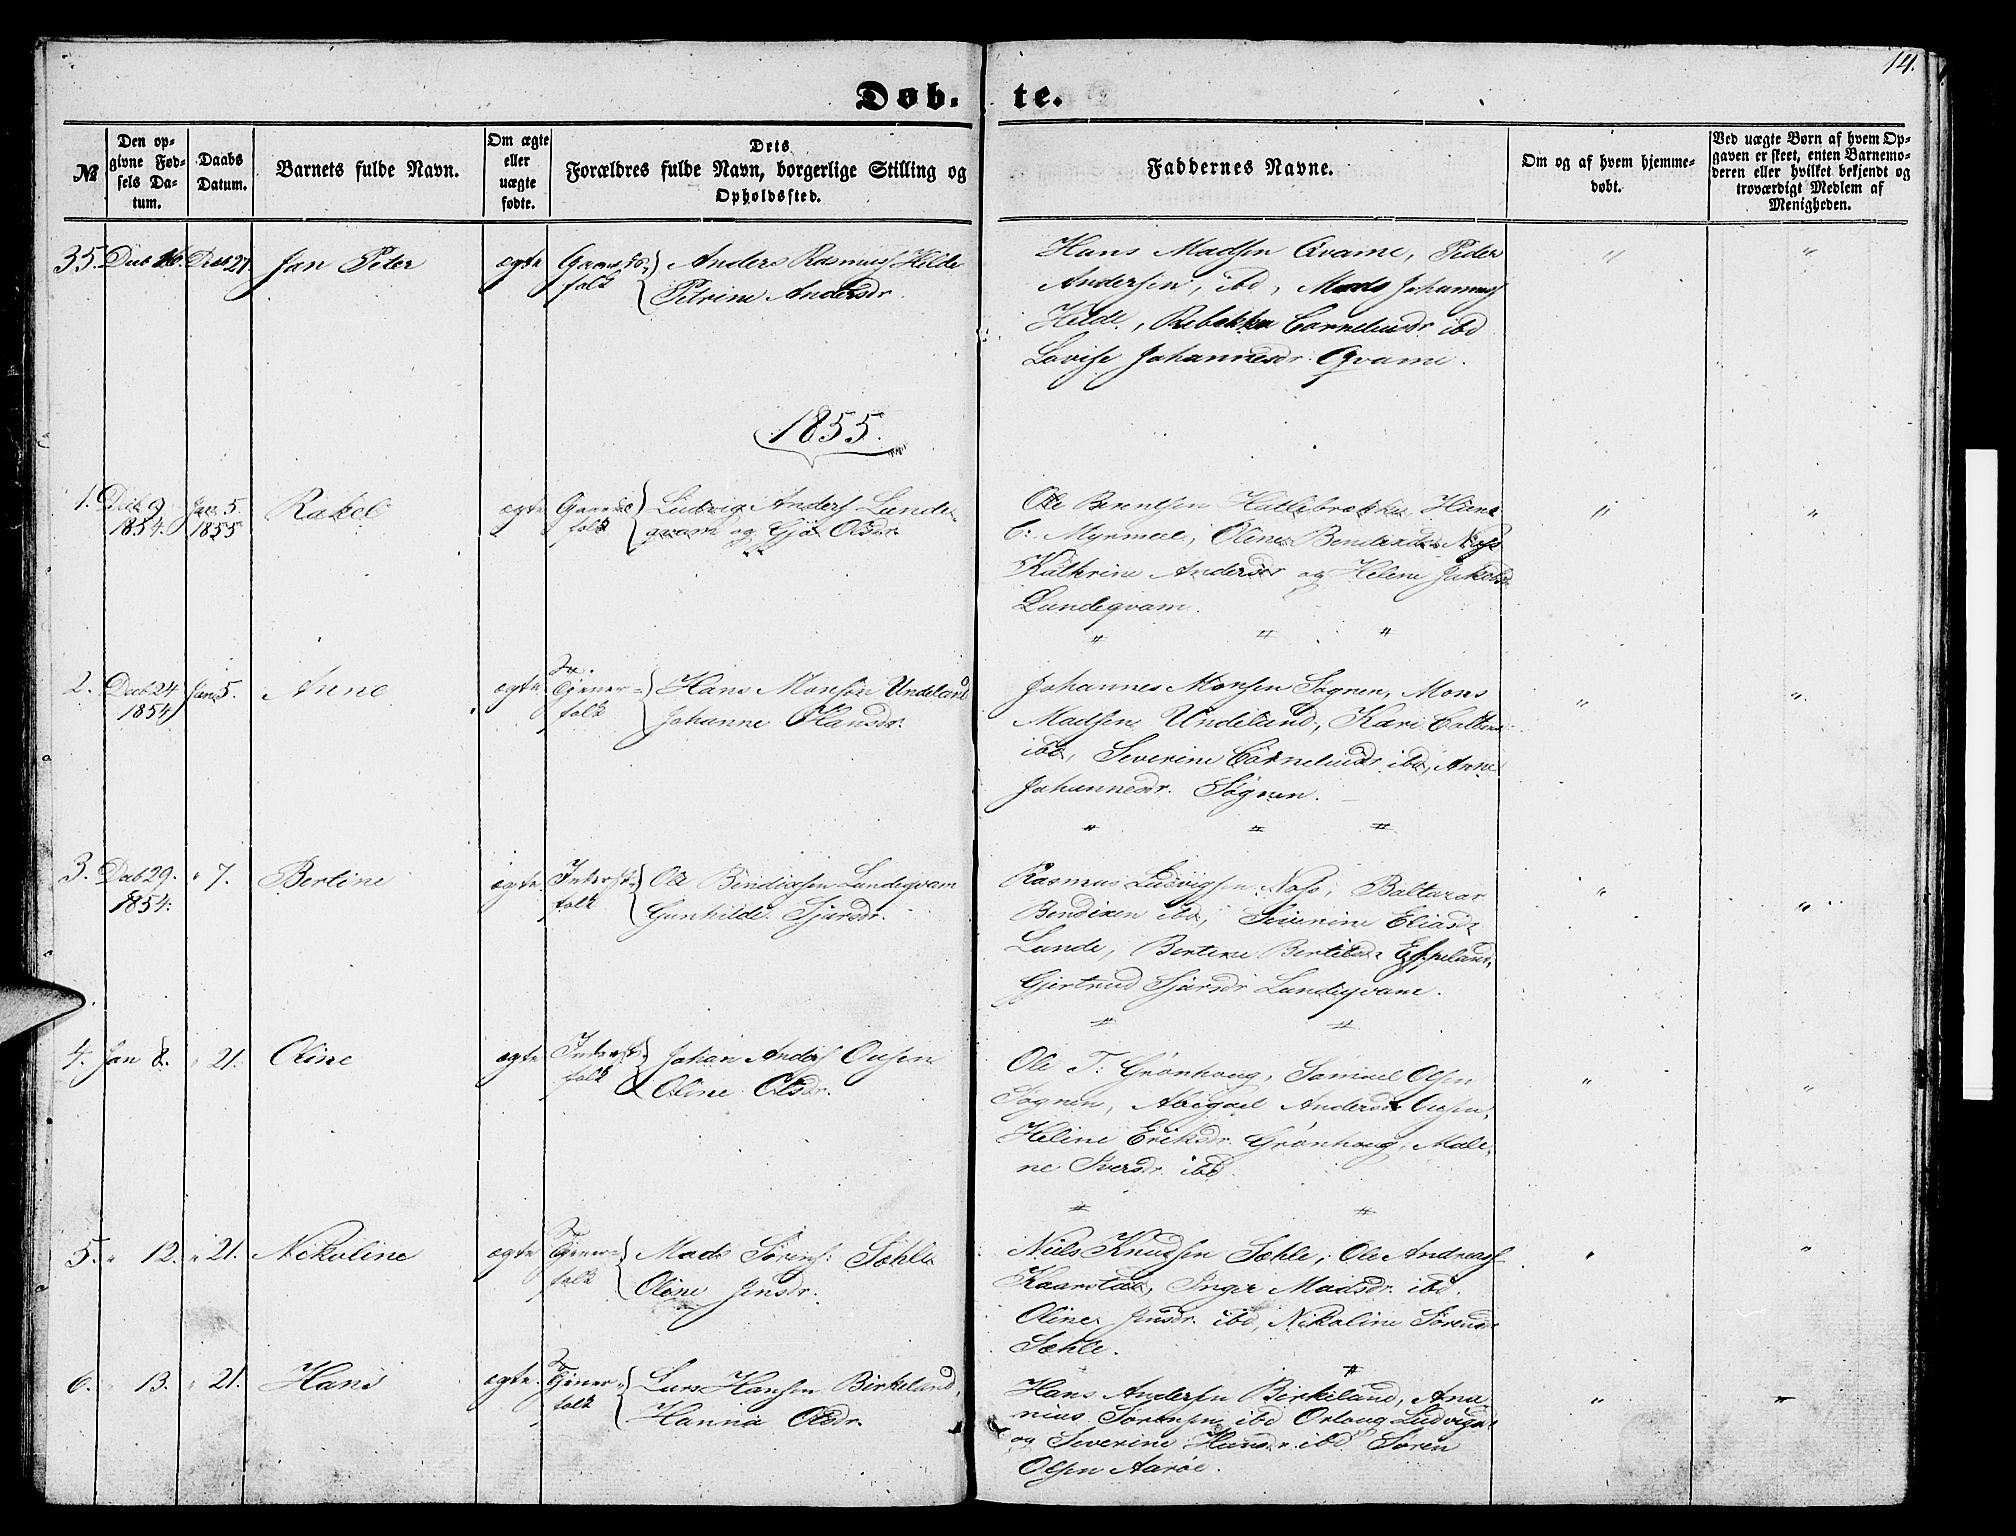 14.
Døb- te.
№ | Den opgivne Fødsels Datum. | Daabs Datum. | Barnets fulde Navn. | Om ægte eller uægte fødte. | Dets Forældres fulde Navn, borgerlige Stilling og Opholdssted. | Faddernes Navne. | Om og af hvem hjemmedøbt. | Ved uægte Børn af hvem Opgaven er skeet, enten Barnemoderen eller hvilket bekjendt og troværdigt Medlem af Menigheden.
35. Decb 26. Decb 27. Jan Peter ægte Gaards- folk Anders Rasmuss Hilde
Petrine Andersdr.
Hans Madsen Qvame, Peder " "
Andersen, ibd, Mads Johanness
Hilde, Rebekka Corneliusdr ibd
Lovise Johannesdr. Qvame.
1855.
1. Decb 9. 1854. Jan. 5. 1855 Rakel ægte Gaard- folk Ludvig Anders Lunde-
qvam og Gjø Olsdr.
Ole Berentsen Hatlebrække, Hans " "
C: Myrmeel, Oline Bendixdr Næss
Kathrine Andersdr og Helene Jakobdr
Lundeqvam.
" " "
2. Decb 24 1854 Jan 5. Anne ægte Tjener- folk Hans Monsen Undeland
Johanne Hansdr.
Johannes Monsen Sognen, Mons " "
Madsen Undeland, Kari
ibd, Severine Corneliusdr ibd, Anne
Johannesdr. Sognen.
" " "
3. Decb 29. 1854. " 7. Bertine ægte Inderst- folk Ole Bendixsen Lundeqvam
Gunhilde Sjursdr.
Rasmus Ludvigsen Næss, Baltazar " "
Bendixen ibd, Severine Eliasdr
Lunde, Bertine Bertilsdr Espeland,
Gjertrud Sjursdr Lundeqvam.
" "
4. Jan 8. " 21. Oline ægte Inderst- folk Johan Anders Ousen
Oline Olsdr.
Ole T: Grønhoug, Samuel Olsen " "
Sognen, Abigael Andersdr Ousen,
Heline Eriksdr. Grønhoug, Male-
ne Iversdr. ibd.
" "
5. " 12. " 21. Nikoline ægte Tjener- folk Mads Sørens: Sæhle
Oline Jensdr.
Niels Knudsen Sæhle, Ole Andreass " "
Kaarstad, Inger Madsdr. ibd.
Oline Jensdr. ibd, Nikoline Sørensdr
Sæhle.
"
6. " 13. " 21. Hans ægte. Tjener- folk Lars Hansen Birkeland,
Hanna Olsdr.
Hans Andersen Birkeland, Ana- " "
nias Sørensen ibd Orloug Ludvigsdr
og Severine Hansdr ibd. Søren
Olsen Aarøe.